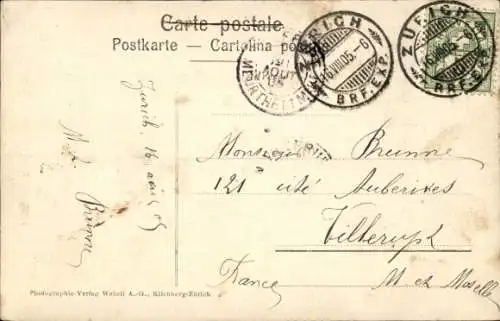 Carte postale.
Postkarte — Cartolina
ZÜRICH
16.VIII.05.-6
BRF. EXP.
ZÜRICH
16.VIII.05.-6
BRF. EXP.
AOUT
05
MEURTHE ET M
Zurich, 16 août 05
M. Brunne
Monsieur Brunne
121 cité
France
M et Moselle
Photographie-Verlag Wehrli A.-G., Kilchberg-Zürich